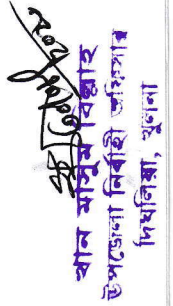 খান মাসুম বিল্লাহ
উপজেলা নির্বাহী অফিসার
দিঘলিয়া, খুলনা